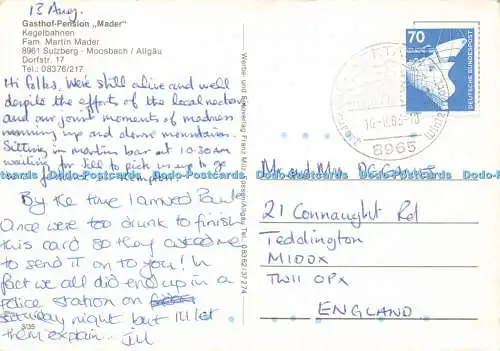 13 Aug.
Gasthof-Pension „Mader"
Kegelbahnen
Fam. Martin Mader
8961 Sulzberg - Moosbach / Allgäu
Dorfstr. 17
Tel.: 08376/217
Hi folks, We're still alive and well
despite the efforts of the local
and our joint moments of madness
running up and down mountains.
Sitting in martins bar at 10.30am
waiting for Jill to pick us up to go
By the time I arrived Paul
Once were too drunk to finish
this card so they asked me
to send it on to you! In
fact we all did end up in a
police station on
saturday night but I'll let
them explain. Jill
3/35
Werbe- und Spezialverlag Franz Milz
08362/37274
70
DEUTSCHE BUNDESPOST
8965
Mr and Mrs
21 Connaught Rd
Teddington
MIDDX
TW11 0PX
ENGLAND
Dodo-Postcards